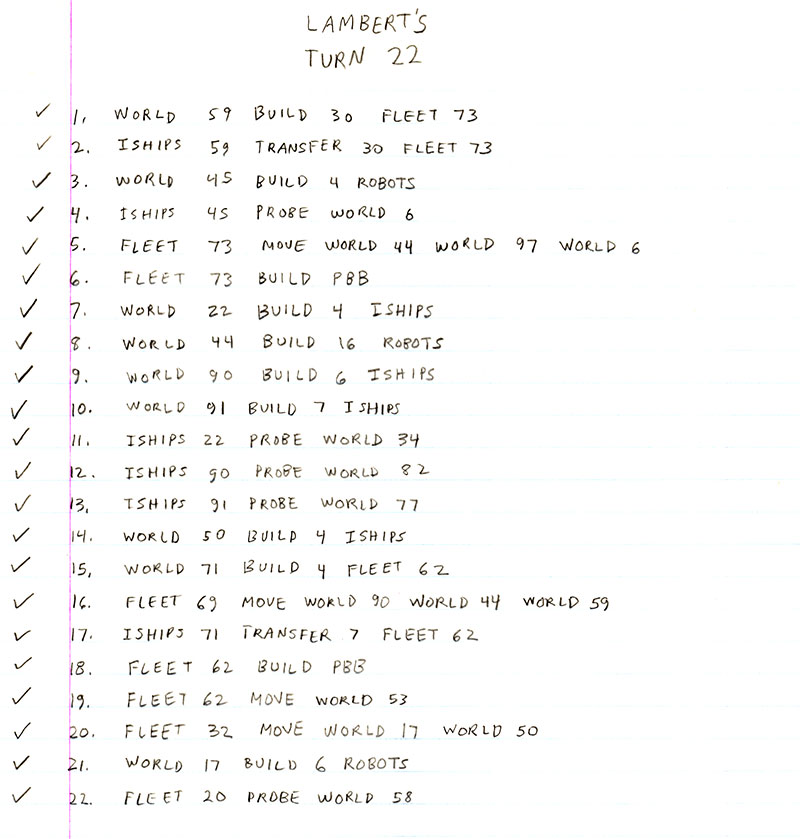 LAMBERT'S
TURN 22
✓ 1. WORLD 59 BUILD 30 FLEET 73
✓ 2. ISHIPS 59 TRANSFER 30 FLEET 73
✓ 3. WORLD 45 BUILD 4 ROBOTS
✓ 4. ISHIPS 45 PROBE WORLD 6
✓ 5. FLEET 73 MOVE WORLD 44 WORLD 97 WORLD 6
✓ 6. FLEET 73 BUILD PBB
✓ 7. WORLD 22 BUILD 4 ISHIPS
✓ 8. WORLD 44 BUILD 16 ROBOTS
✓ 9. WORLD 90 BUILD 6 ISHIPS
✓ 10. WORLD 91 BUILD 7 ISHIPS
✓ 11. ISHIPS 22 PROBE WORLD 34
✓ 12. ISHIPS 90 PROBE WORLD 82
✓ 13. ISHIPS 91 PROBE WORLD 77
✓ 14. WORLD 50 BUILD 4 ISHIPS
✓ 15. WORLD 71 BUILD 4 FLEET 62
✓ 16. FLEET 69 MOVE WORLD 90 WORLD 44 WORLD 59
✓ 17. ISHIPS 71 TRANSFER 7 FLEET 62
✓ 18. FLEET 62 BUILD PBB
✓ 19. FLEET 62 MOVE WORLD 53
✓ 20. FLEET 32 MOVE WORLD 17 WORLD 50
✓ 21. WORLD 17 BUILD 6 ROBOTS
✓ 22. FLEET 20 PROBE WORLD 58